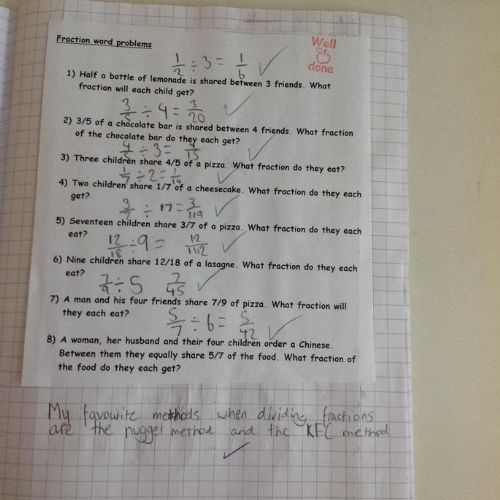 Fraction word problems
Well done
1/2 ÷ 3 = 1/6
1) Half a bottle of lemonade is shared between 3 friends. What
fraction will each child get?
3/5 ÷ 4 = 3/20
2) 3/5 of a chocolate bar is shared between 4 friends. What fraction
of the chocolate bar do they each get?
4/5 ÷ 3 = 4/15
3) Three children share 4/5 of a pizza. What fraction do they eat?
1/7 ÷ 2 = 1/14
4) Two children share 1/7 of a cheesecake. What fraction do they each
get?
3/7 ÷ 17 = 3/119
5) Seventeen children share 3/7 of a pizza. What fraction do they each
eat?
12/18 ÷ 9 = 12/162
6) Nine children share 12/18 of a lasagne. What fraction do they each
eat?
7/9 ÷ 5 7/45
7) A man and his four friends share 7/9 of pizza. What fraction will
they each eat?
5/7 ÷ 6 = 5/42
8) A woman, her husband and their four children order a Chinese.
Between them they equally share 5/7 of the food. What fraction of
the food do they each get?
My favowite methods when dividing fractions
are the nugget method and the KFC method